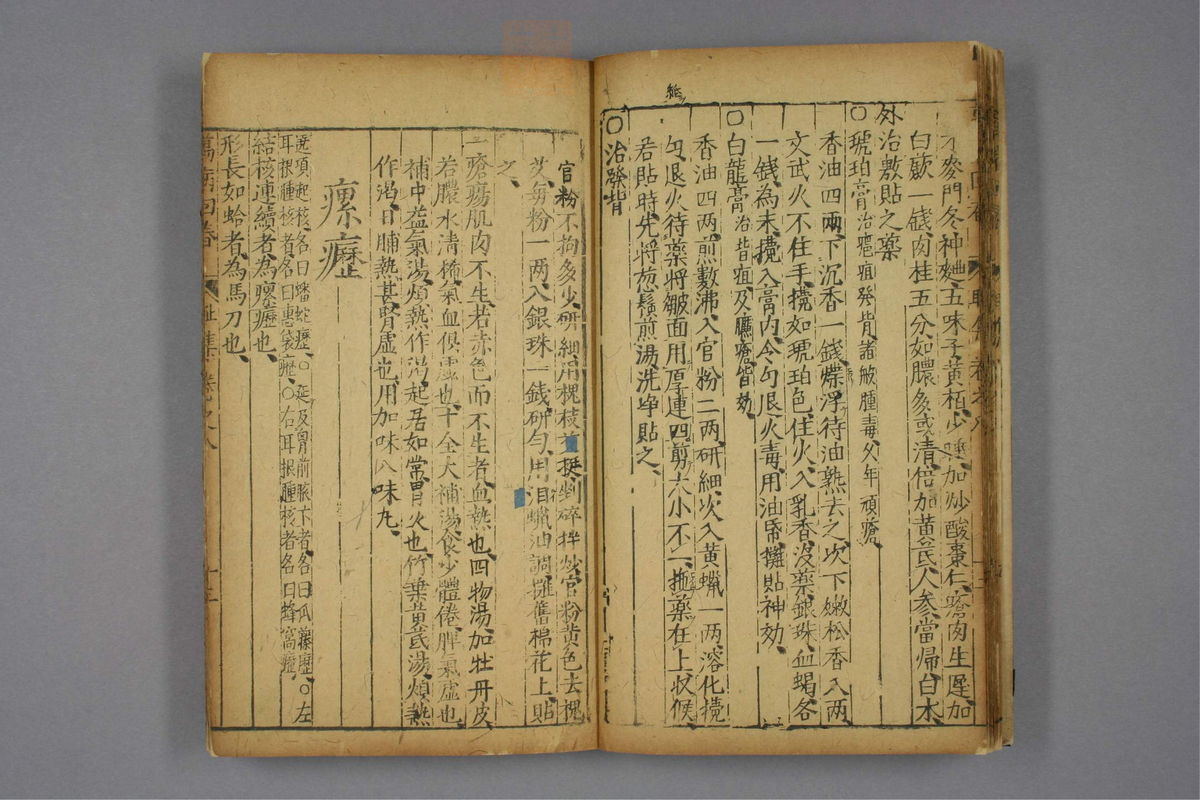 不麥門冬神曲五味子黃栢少睡加炒酸棗仁瘡肉生遲加
白蘞一錢肉桂五分如膿多或清倍加黃芪人參當歸白朮
外治敷貼之藥
〇琥珀膏治癰疽發背諸般腫毒久年頑瘡
香油四兩下沉香一錢煠浮待油熟去之次下嫩松香八兩
文武火不住手攪如琥珀色住火入乳香沒藥銀珠血蝎各
一錢為末攪入膏內令勻退火毒用油帋攤貼神効
〇白龍膏治背疽及臁瘡皆効
香油四兩煎數沸入官粉二兩研細次入黃蠟一兩溶化攪
勻退火待藥將皺面用厚連四剪大小不一拖藥在上收候
若貼時先將葱鬚煎湯洗净貼之
〇治發背
官粉不拘多少研細用槐枝 挺剉碎拌炒官粉黃色去槐
艾每粉一兩入銀珠一錢研勻用泪蠟油調攤舊棉花上貼
之
一瘡瘍肌肉不生若赤色而不生者血熱也四物湯加牡丹皮
若膿水清稀氣血俱虛也十全大補湯食少體倦脾氣虛也
補中益氣湯煩熱作渴起居如常胃火也竹葉黃芪湯煩熱
作渴日晡熱甚腎虛也用加味八味丸
瘰癧
遶項起核名曰蟠蛇癧〇延及胷前腋下者名曰瓜藤癧〇左
耳根腫核者名曰惠袋癧〇右耳根腫核者名曰蜂窩癧
結核連續者為瘰癧也
形長如蛤者為馬刀也
萬病回春